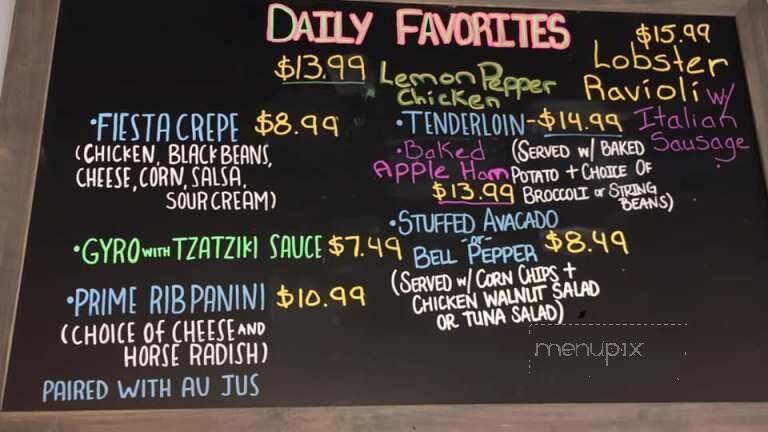 DAILY FAVORITES
$13.99 Lemon Pepper
Chicken
$15.99
Lobster
Ravioli w/
Italian
Sausage
•FIESTA CREPE $8.99
(CHICKEN, BLACK BEANS,
CHEESE, CORN, SALSA,
SOUR CREAM)
•GYRO WITH TZATZIKI SAUCE $7.49
•PRIME RIB PANINI $10.99
(CHOICE OF CHEESE AND
HORSE RADISH)
PAIRED WITH AU JUS
•TENDERLOIN-$14.99
(SERVED W/ BAKED
POTATO + CHOICE OF
BROCCOLI OR STRING
BEANS)
•Baked
Apple Ham
$13.99
•STUFFED AVACADO
-or-
BELL PEPPER $8.49
(SERVED W/ CORN CHIPS +
CHICKEN WALNUT SALAD
OR TUNA SALAD)
menupix